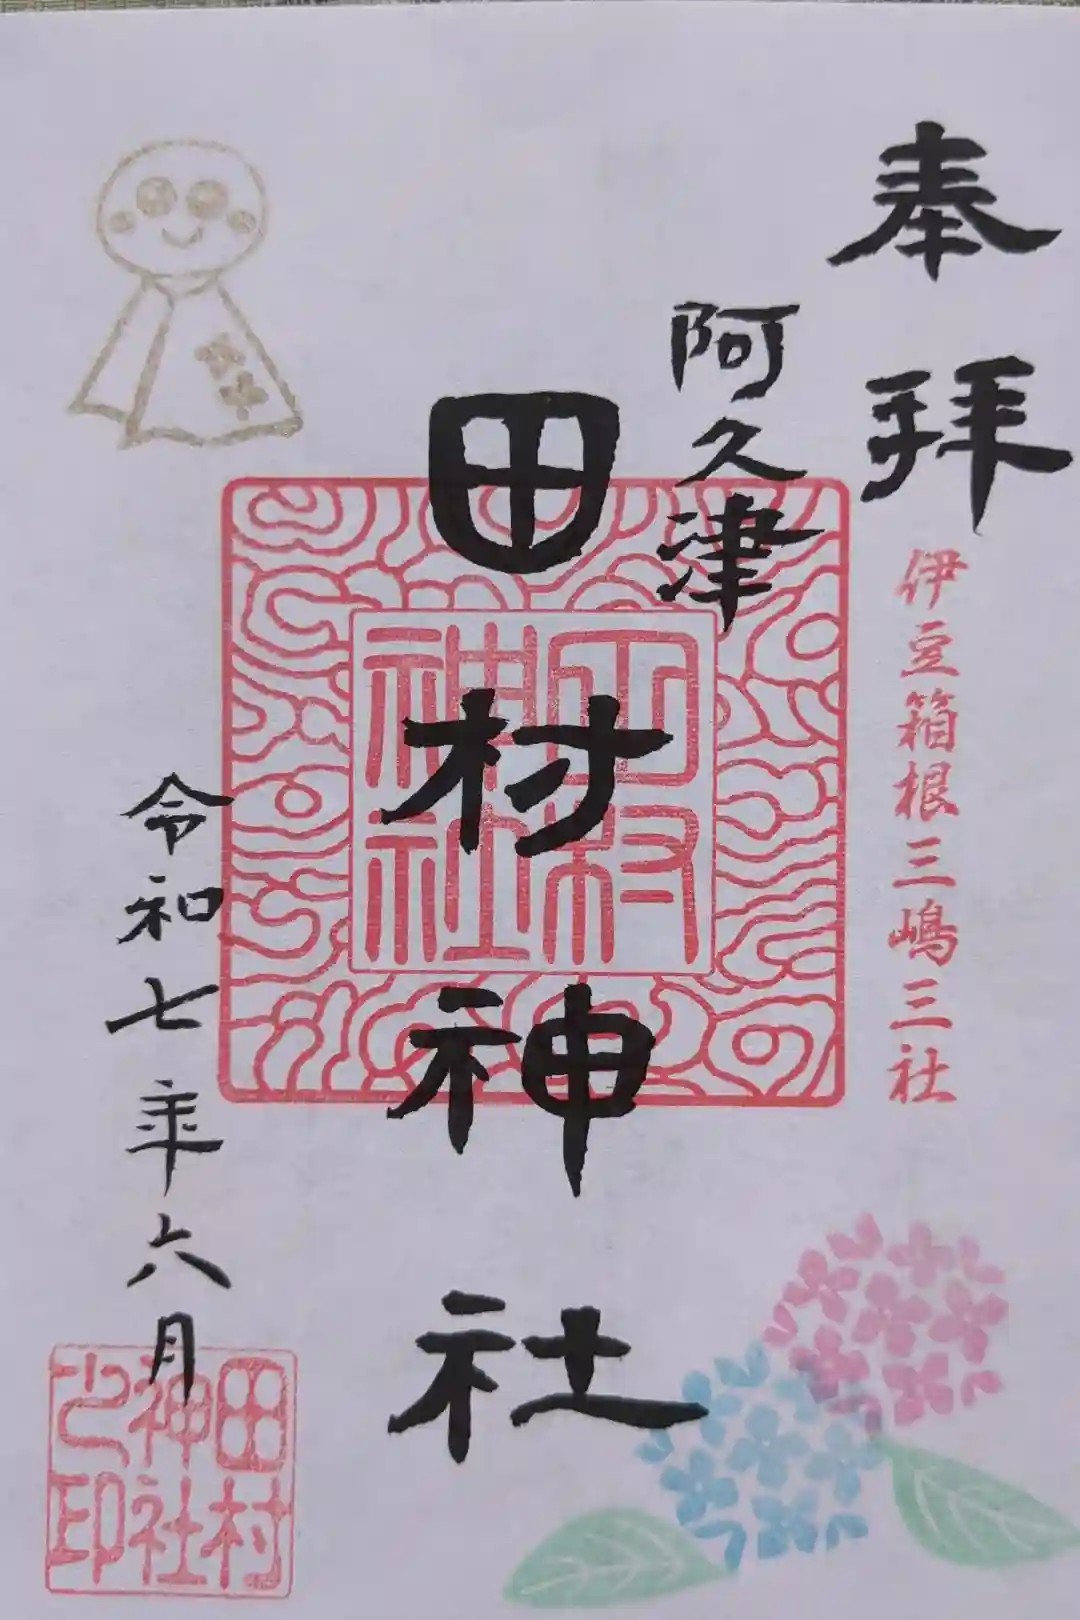 奉拝
伊豆箱根三嶋三社
阿久津
田村神社
田村
神社
令和七年六月
田村
神社
之印